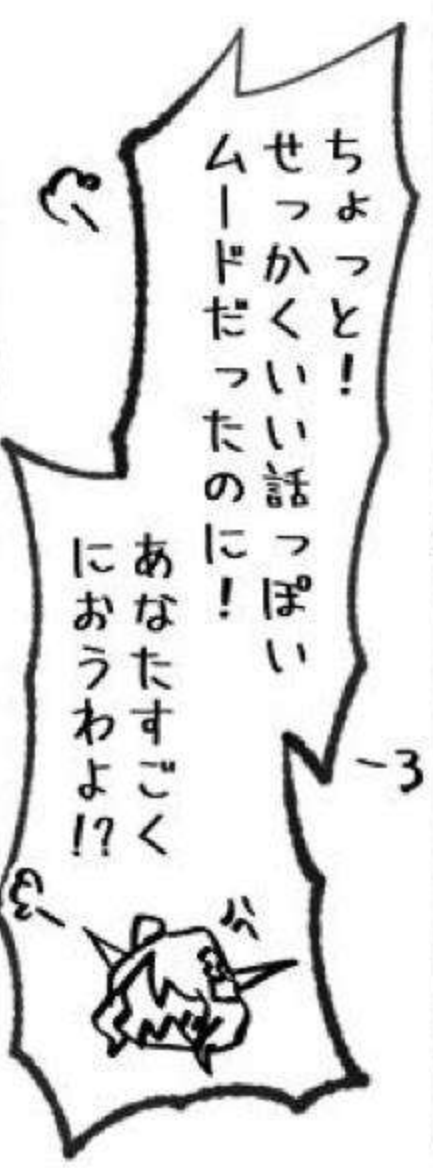 ちょっと!
せっかくいい話っぽい
ムードだったのに!
あなたすごく
におうわよ!?